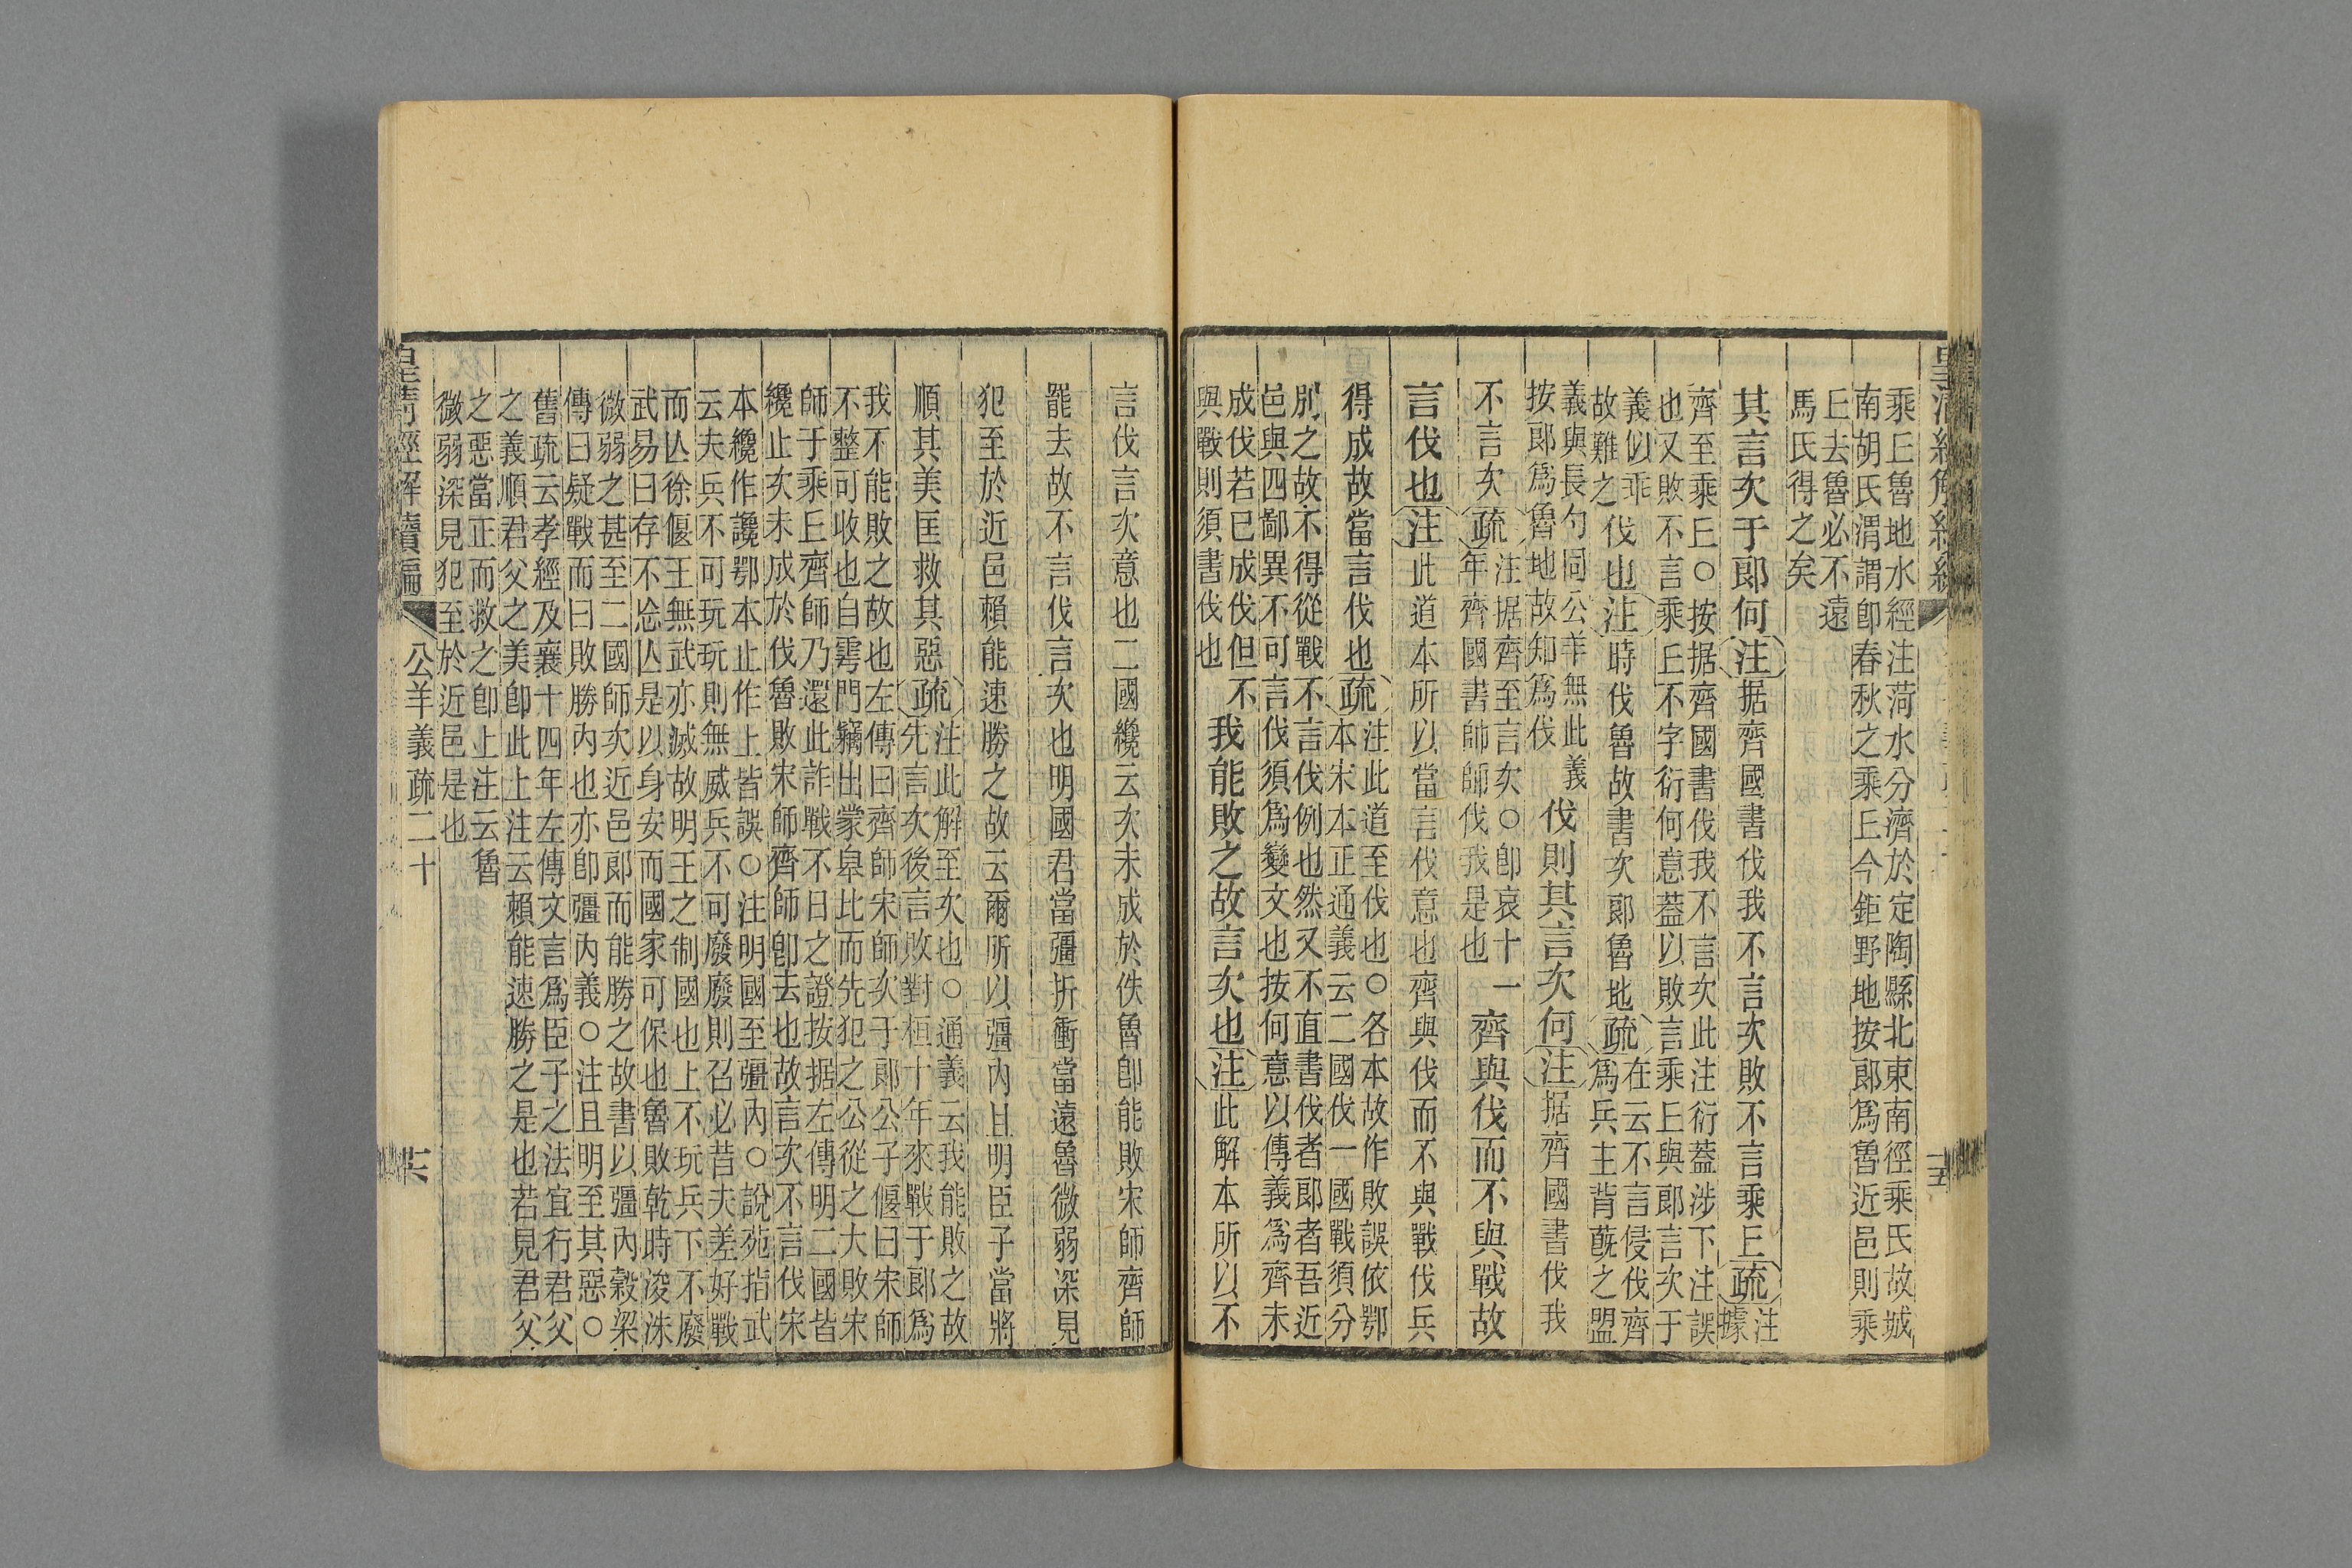 乘丘魯地水經注菏水分濟於定陶縣北東南徑乘氏故城
南胡氏渭謂卽春秋之乘丘今鉅野地按郞爲魯近邑則乘
丘去魯必不遠
馬氏得之矣
其言次于郞何注据齊國書伐我不言次敗不言乘丘疏注
據
齊至乘丘○按据齊國書伐我不言次此注衍蓋涉下注誤
也又敗不言乘丘不字衍何意蓋以敗言乘丘與郞言次于
義似乖
故難之伐也注時伐魯故書次郞魯地疏在云不言侵伐齊
爲兵主背蔇之盟
義與長勺同公羊無此義
按郞爲魯地故知爲伐伐則其言次何注据齊國書伐我
不言次疏注据齊至言次○卽哀十一
年齊國書帥師伐我是也齊與伐而不與戰故
言伐也注此道本所以當言伐意也齊與伐而不與戰伐兵
得成故當言伐也疏注此道至伐也○各本故作敗誤依鄂
本宋本正通義云二國伐一國戰須分
別之故不得從戰不言伐例也然又不直書伐者郞者吾近
邑與四鄙異不可言伐須爲變文也按何意以傳義爲齊未
成伐若已成伐但不
與戰則須書伐也我能敗之故言次也注此解本所以不
言伐言次意也二國纔云次未成於伐魯卽能敗宋師齊師
罷去故不言伐言次也明國君當彊折衝當遠魯微弱深見
犯至於近邑賴能速勝之故云爾所以彊內且明臣子當將
順其美匡救其惡疏注此解至次也○通義云我能敗之故
先言次後言敗對桓十年來戰于郞爲
我不能敗之故也左傳曰齊師宋師次于郞公子偃曰宋師
不整可收也自雩門竊出蒙皋比而先犯之公從之大敗宋
師于乘丘齊師乃還此詐戰不日之證按据左傳明二國皆
纔止次未成於伐魯敗宋師齊師卽去也故言次不言伐宋
本纔作讒鄂本止作上皆誤○注明國至彊內○說苑指武
云夫兵不可玩玩則無威兵不可廢廢則召必昔夫差好戰
而亾徐偃王無武亦滅故明王之制國也上不玩兵下不廢
武易曰存不忘亾是以身安而國家可保也魯敗乾時浚洙
微弱之甚至二國師次近邑郞而能勝之故書以彊內穀梁
傳曰疑戰而曰敗勝內也亦卽彊內義○注且明至其惡○
舊疏云孝經及襄十四年左傳文言爲臣子之法宜行君父
之義順君父之美卽此上注云賴能速勝之是也若見君父
之惡當正而救之卽上注云魯
微弱深見犯至於近邑是也
公羊義疏二十